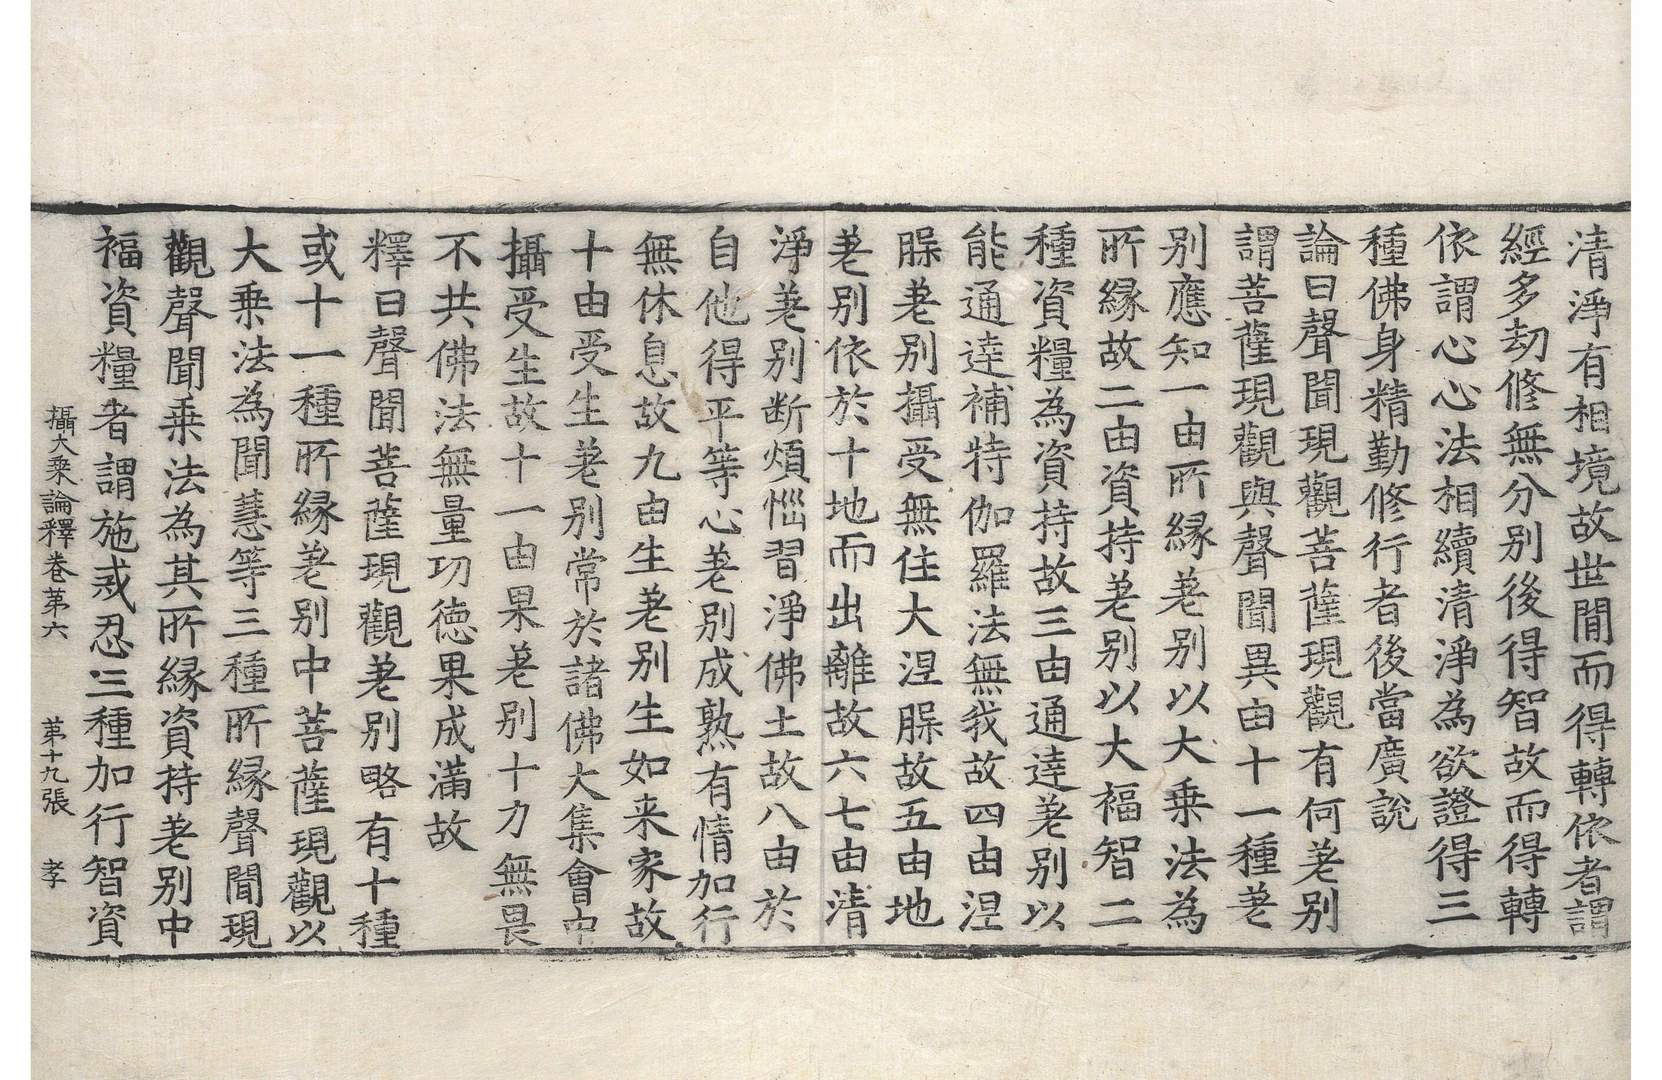 清淨有相境故世間而得轉依者謂
經多劫修無分別後得智故而得轉
依謂心心法相續清淨為欲證得三
種佛身精勤修行者後當廣說
論曰聲聞現觀菩薩現觀有何差別
謂菩薩現觀與聲聞異由十一種差
別應知一由所縁差別以大乗法為
所縁故二由資持差別以大福智二
種資糧為資持故三由通達差別以
能通達補特伽羅法無我故四由涅
槃差別攝受無住大涅槃故五由地
差別依於十地而出離故六七由清
淨差別断煩惱習淨佛土故八由於
自他得平等心差別成熟有情加行
無休息故九由生差別生如来家故
十由受生差別常於諸佛大集會中
攝受生故十一由果差別十力無畏
不共佛法無量功德果成滿故
釋曰聲聞菩薩現觀差別略有十種
或十一種所縁差別中菩薩現觀以
大乗法為聞慧等三種所縁聲聞現
觀聲聞乗法為其所縁資持差別中
福資糧者謂施戒忍三種加行智資
攝大乗論釋卷第六　第十九張　孝